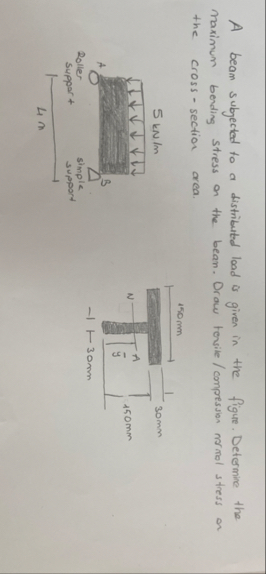 A beam subjected to a distributed load is given in the figure. Determine the
maximum bending stress on the beam. Draw tensile/compression normal stress on
the cross-section area.
5 kN/m
A
B
Roller
support
simple
support
4 m
150mm
30mm
150mm
N
A
ȳ
30mm